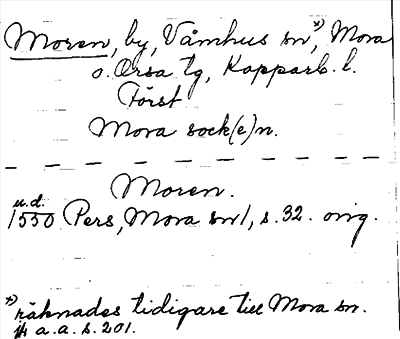 Moren, by, Våmhus sn x), Mora
o. Orsa tg, Kopparb. l.
Först
Mora sock(e)n.
Moren.
u.d.
1550 Pers, Mora sn/, s. 32. orig.
x) räknades tidigare till Mora sn.
jfr a.a. s. 201.